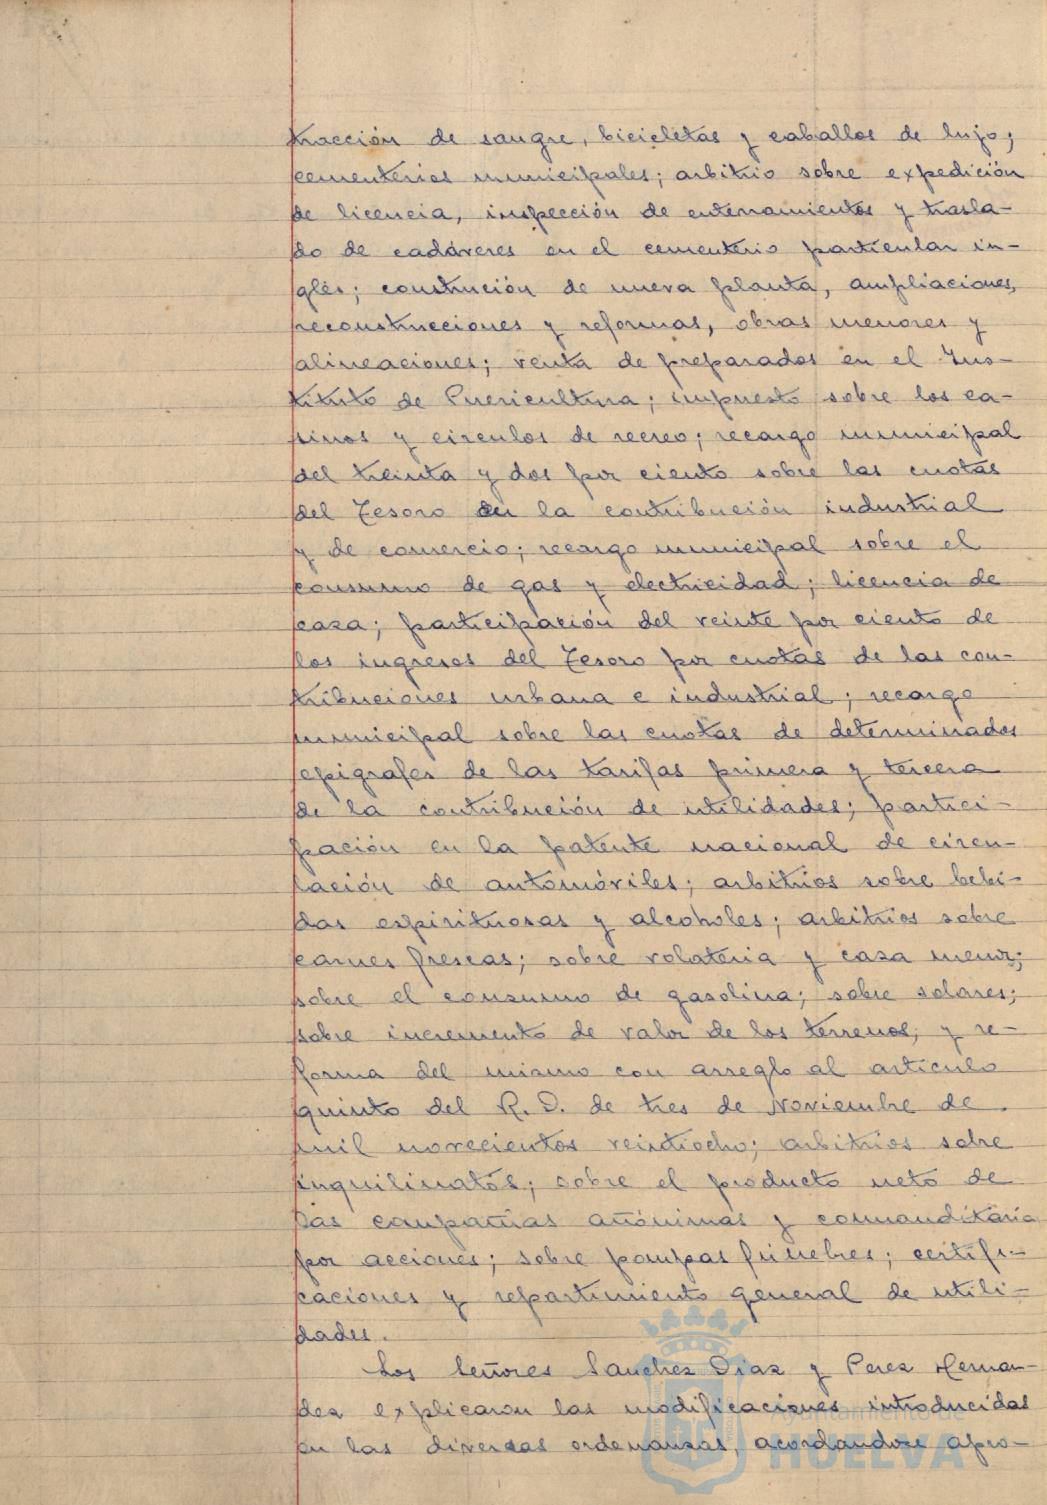 tracción de sangre, bicicletas y caballos de lujo;
cementerios municipales; arbitrio sobre expedición
de licencia, inspección de enterramientos y trasla-
do de cadáveres en el cementerio particular in-
glés; construción de nueva planta, ampliaciones,
reconstrucciones y reformas, obras menores y
alineaciones; venta de preparados en el Ins-
tituto de Puericultura; impuesto sobre los ca-
sinos y circulos de recreo; recargo municipal
del treinta y dos por ciento sobre las cuotas
del Tesoro en la contribución industrial
y de comercio; recargo municipal sobre el
consumo de gas y electricidad; licencia de
caza; participación del veinte por ciento de
los ingresos del Tesoro por cuotas de las con-
tribuciones urbana e industrial; recargo
municipal sobre las cuotas de determinados
epigrafes de las tarifas primera y tercera
de la contribución de utilidades; partici-
pación en la patente nacional de circu-
lación de automóviles; arbitrios sobre bebi-
das espirituosas y alcoholes; arbitrios sobre
carnes frescas; sobre volateria y caza menor;
sobre el consumo de gasolina; sobre solares;
sobre incremento de valor de los terrenos, y re-
forma del mismo con arreglo al articulo
quinto del R. D. de tres de Noviembre de
mil novecientos veintiocho; arbitrios sobre
inquilinatos; sobre el producto neto de
las compañias anónimas y comanditaria
por acciones; sobre pompas fúnebres; certifi-
caciones y repartimiento general de utili-
dades.
Los Señores Sanchez Diaz y Perez Hernan-
dez explicaron las modificaciones introducidas
en las diversas ordenanzas, acordandose apro-
Ayuntamiento de
HUELVA